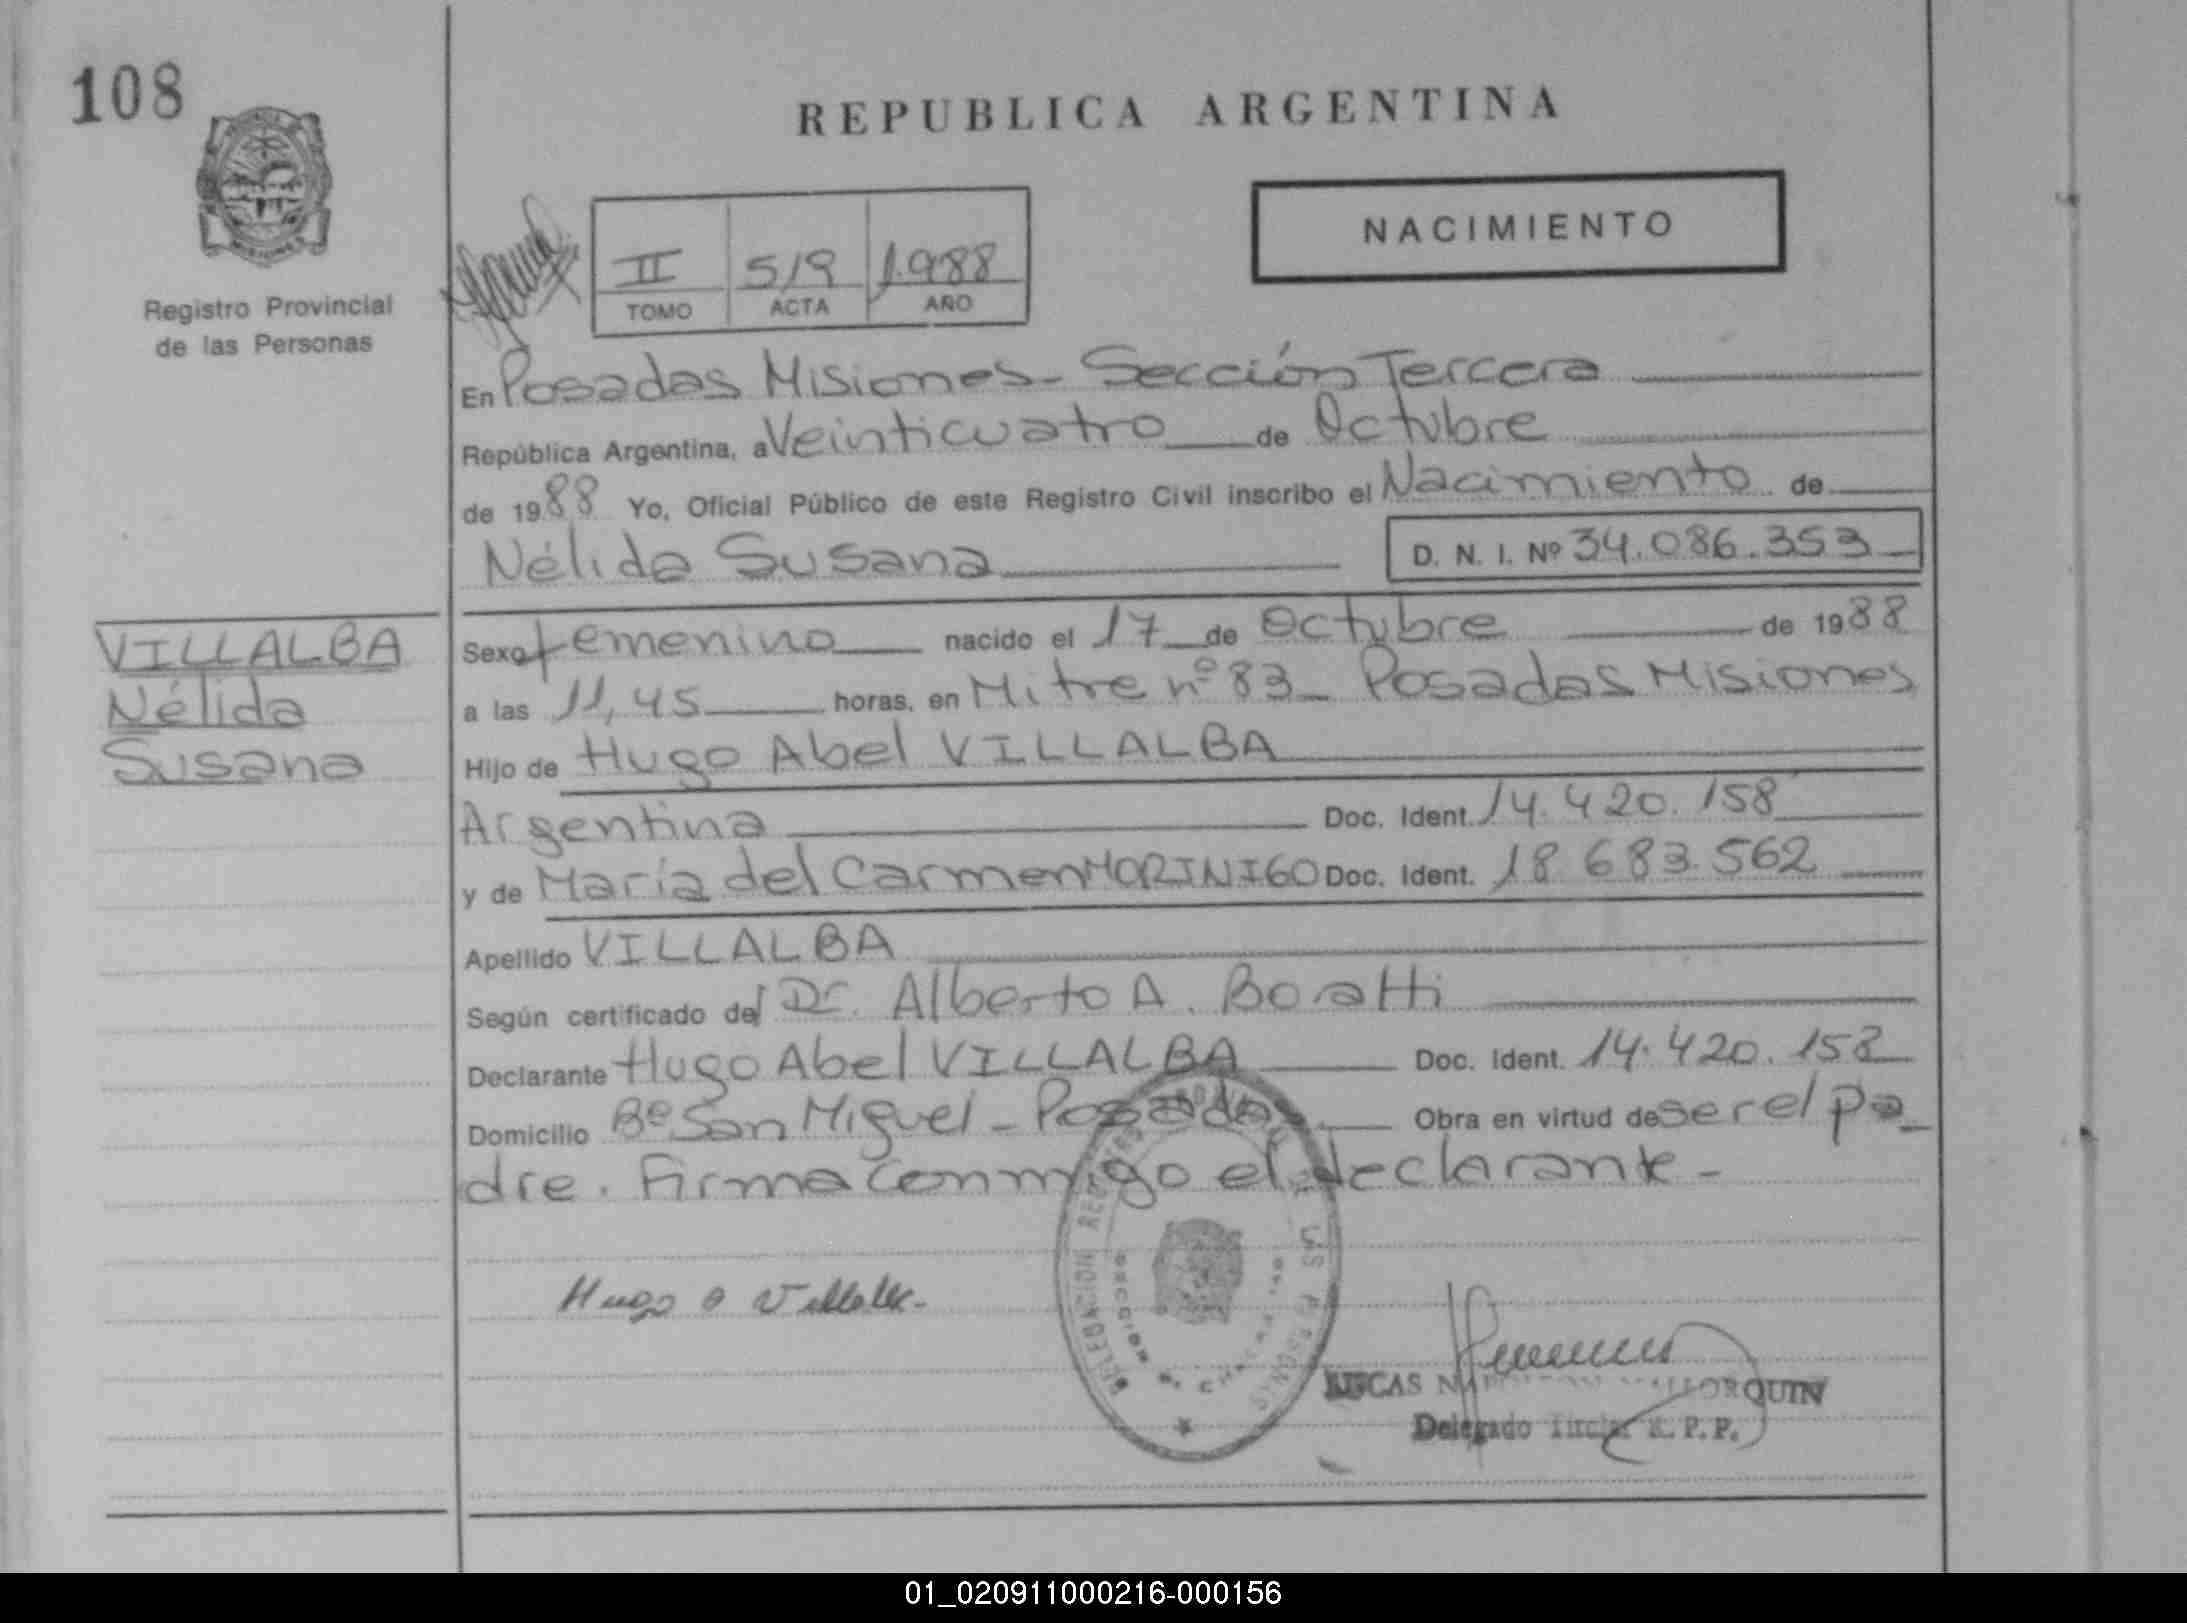 108
REPUBLICA ARGENTINA
NACIMIENTO
II 519 1.988
TOMO ACTA AÑO
Registro Provincial
de las Personas
En Posadas Misiones - Sección Tercera
República Argentina, a Veinticuatro de Octubre
de 1988 Yo, Oficial Público de este Registro Civil inscribo el Nacimiento de
Nélida Susana D. N. I. Nº 34.086.353
VILLALBA
Nélida
Susana
Sexo femenino nacido el 17 de Octubre de 1988
a las 11,45 horas, en Mitre nº 83 - Posadas Misiones
Hijo de Hugo Abel VILLALBA
Argentina Doc. Ident. 14.420.158
y de María del Carmen MORINIGO Doc. Ident. 18.683.562
Apellido VILLALBA
Según certificado del Dr. Alberto A. Boratti
Declarante Hugo Abel VILLALBA Doc. Ident. 14.420.158
Domicilio Bº San Miguel - Posadas Obra en virtud de ser el pa
dre. Firma conmigo el declarante -
Hugo a Villalba
LUCAS MALLORQUIN
Delegado Titular R.P.P.
01_020911000216-000156